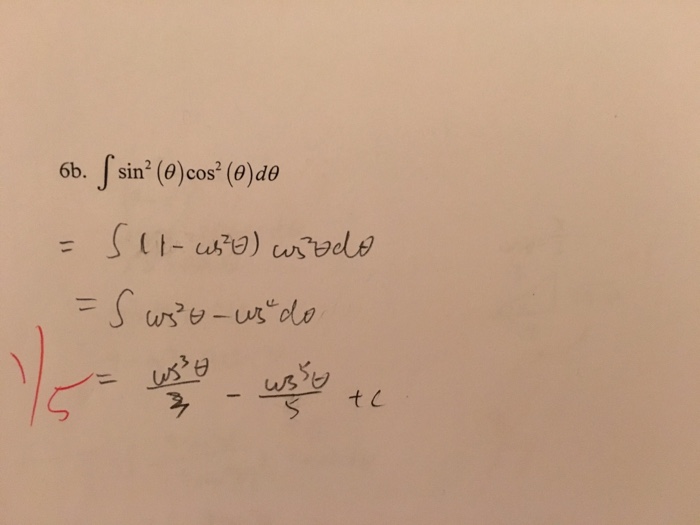 6b. ∫ sin² (θ)cos² (θ)dθ
= ∫ (1 - cos²θ) cos²θdθ
= ∫ cos²θ - cos⁴dθ
1/5 = cos³θ/3 - cos⁵θ/5 + c